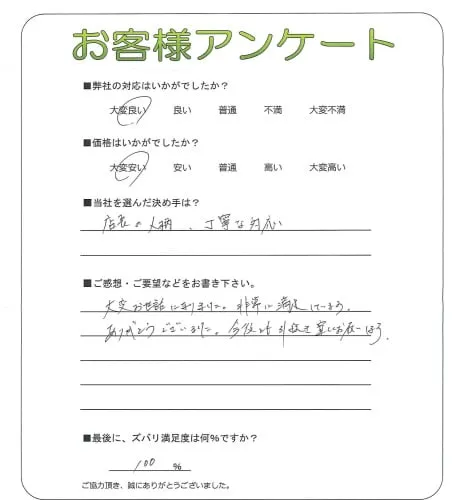 お客様アンケート
■弊社の対応はいかがでしたか？
大変良い 良い 普通 不満 大変不満
■価格はいかがでしたか？
大変安い 安い 普通 高い 大変高い
■当社を選んだ決め手は？
店長の人柄、丁寧な対応
■ご感想・ご要望などをお書き下さい。
大変お世話になりました。非常に満足しています。
ありがとうございました。今後とも引続き宜しくお願いします。
■最後に、ズバリ満足度は何％ですか？
100 %
ご協力頂き、誠にありがとうございました。